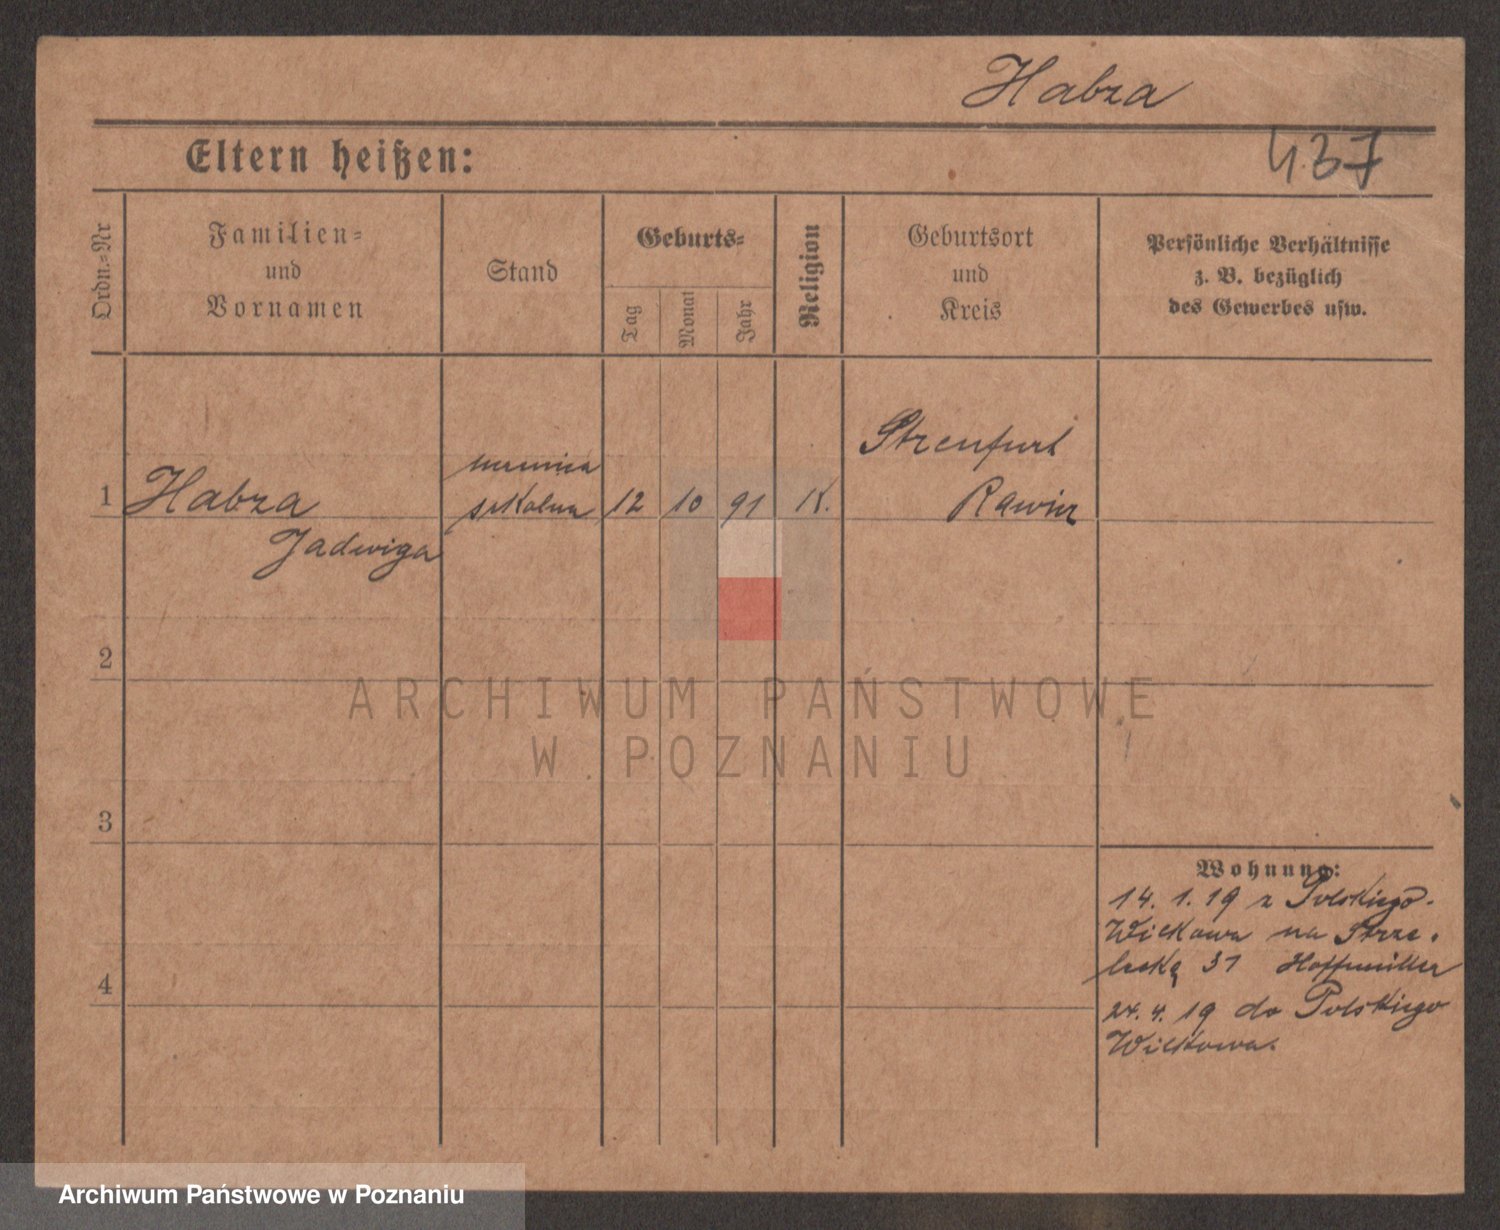 Habza
437
Eltern heißen:
Ordn.=Nr
Familien=
und
Vornamen
Stand
Geburts=
Tag
Monat
Jahr
Religion
Geburtsort
und
Kreis
Persönliche Verhältnisse
z. B. bezüglich
des Gewerbes usw.
1
Habza
Jadwiga
szkolna
12
10
91
K.
Rawicz
2
ARCHIWUM PAŃSTWOWE
W POZNANIU
3
4
Wohnung:
14. 1. 19 z Polskiego-
Wilkowa na Strze-
lecką 31 Hoffmüller
24. 4. 19 do Polskiego
Wilkowa.
Archiwum Państwowe w Poznaniu